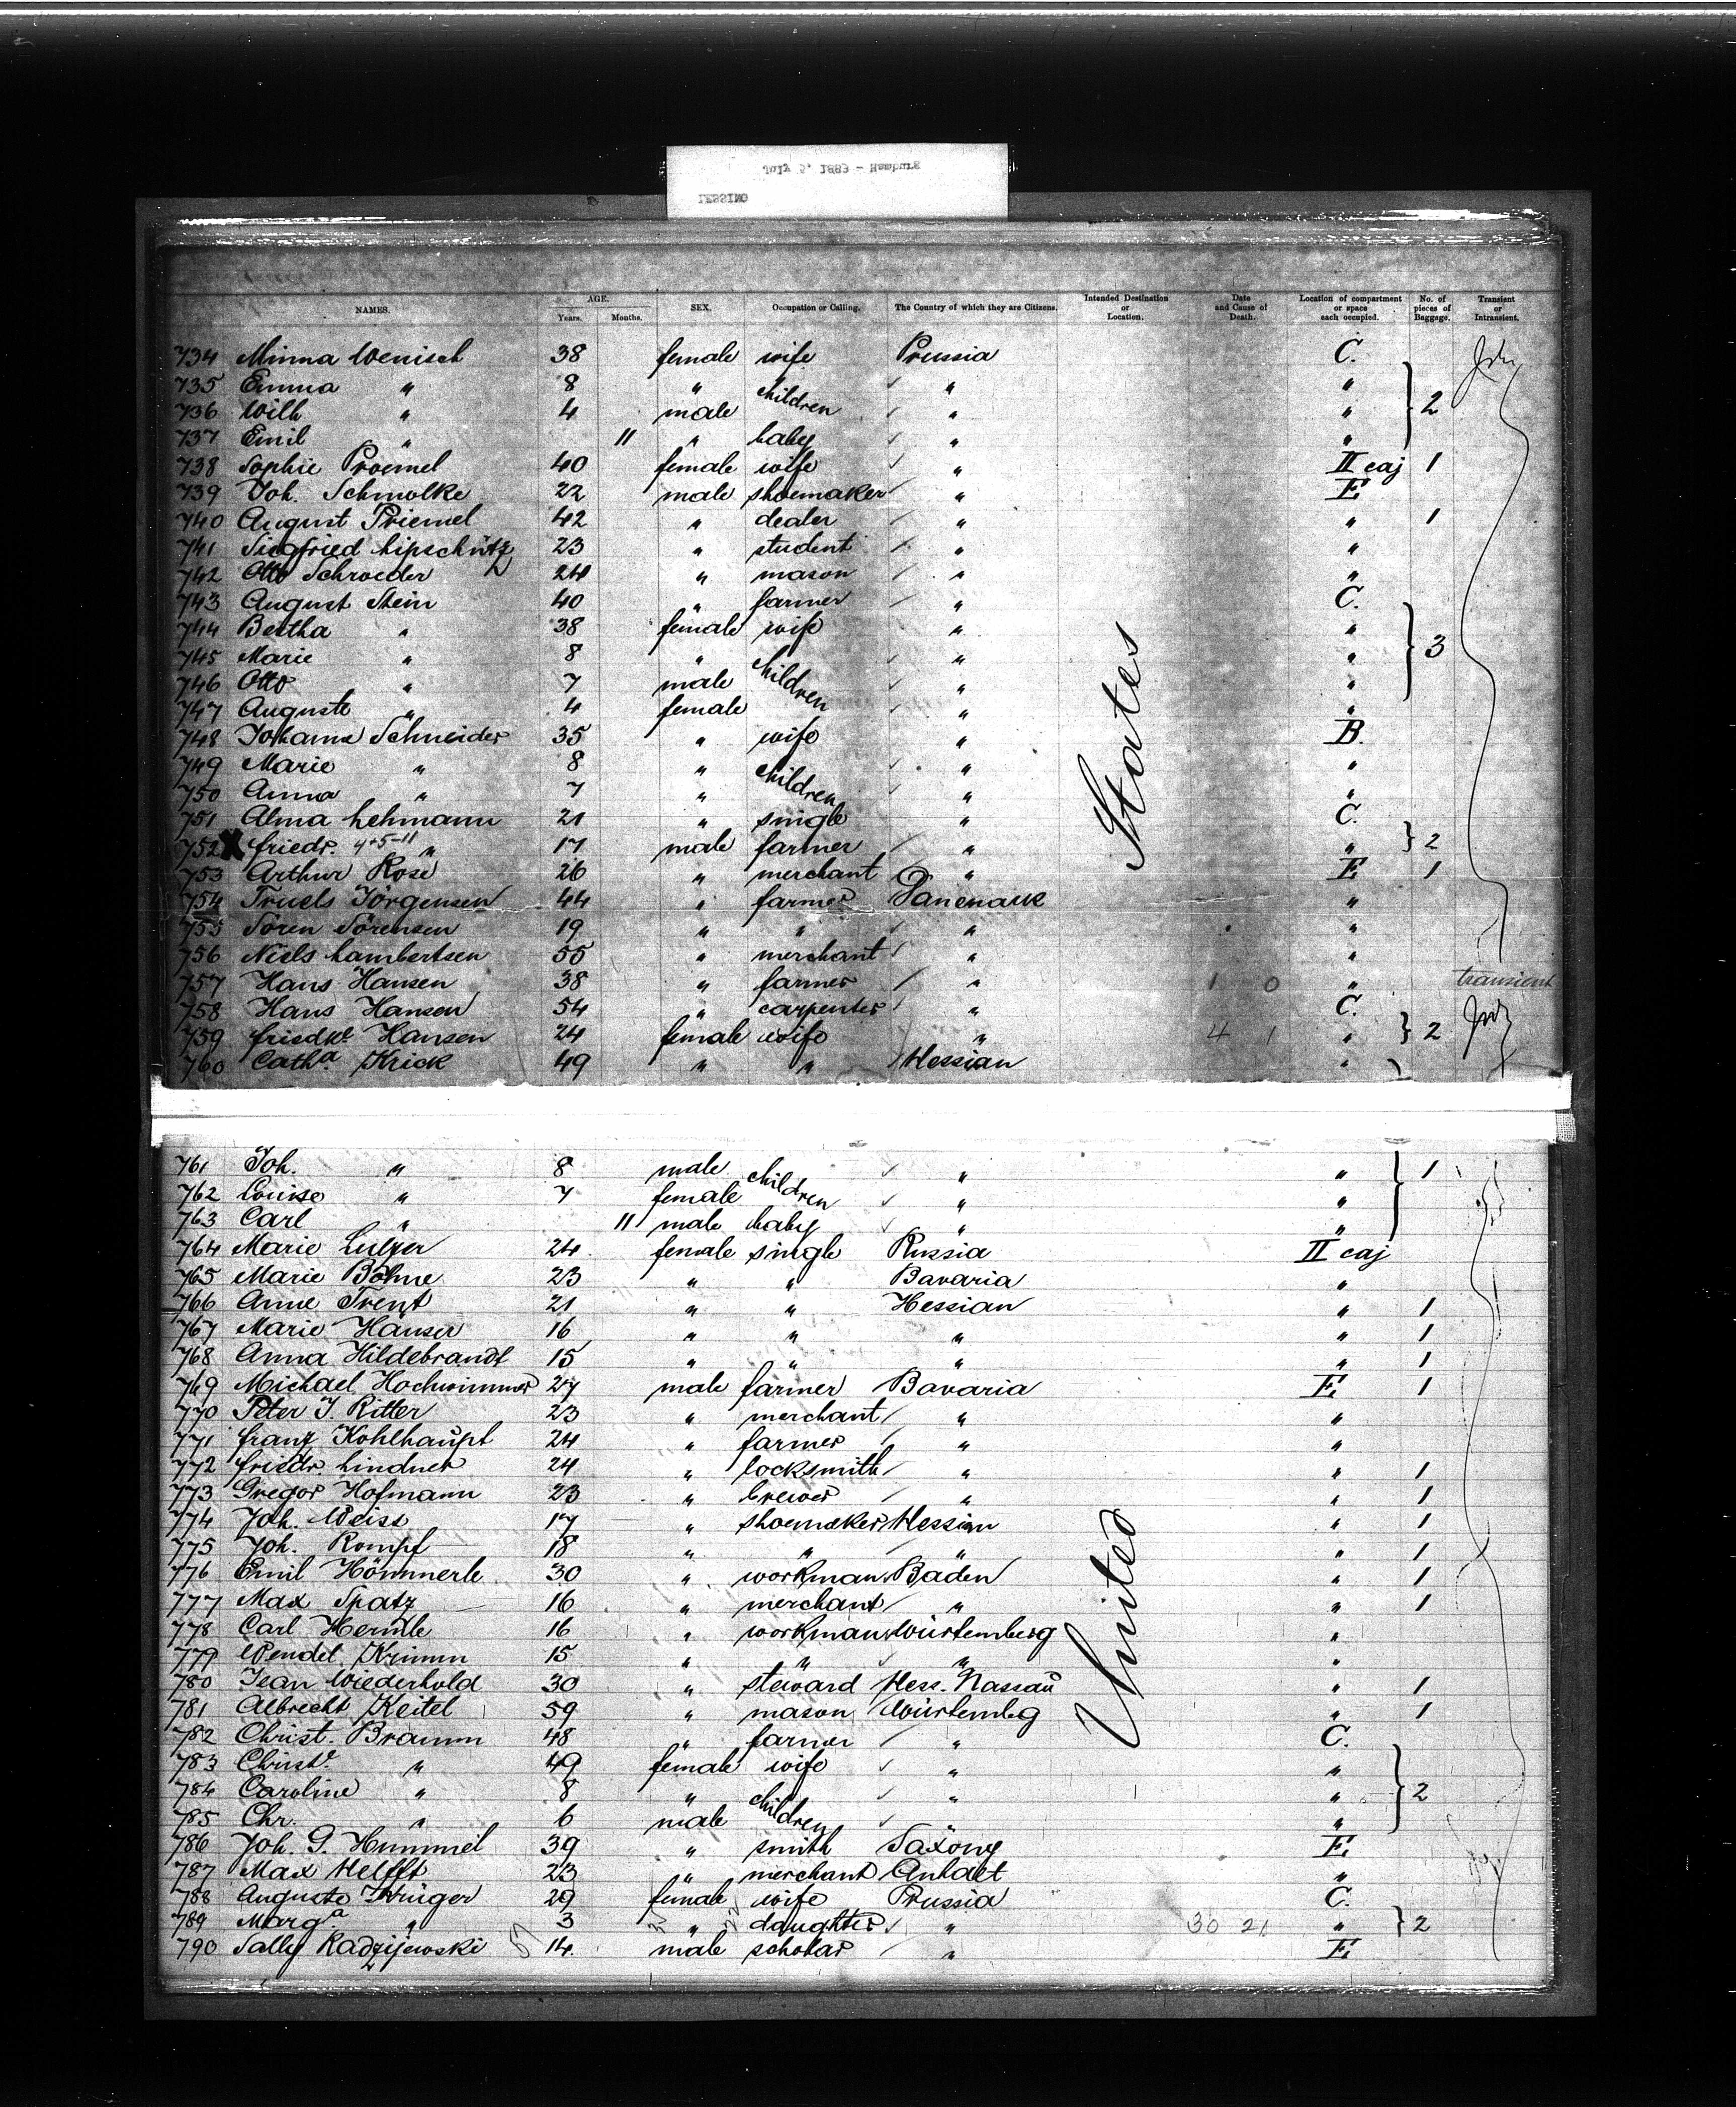 July 5, 1883 - Hamburg
LESSING
NAMES. AGE. Years. Months. SEX. Occupation or Calling. The Country of which they are Citizens. Intended Destination or Location. Date and Cause of Death. Location of compartment or space each occupied. No. of pieces of Baggage. Transient or Intransient.
734 Minna Wenisch 38 female wife Prussia C.
735 Emma " 8 " children " "
736 Wilh " 4 male " " 2
737 Emil " 11 " baby " "
738 Sophie Proemel 40 female wife " II caj 1
739 Joh. Schmolke 22 male shoemaker " E
740 August Priemel 42 " dealer " " 1
741 Siegfried Lipschütz 23 " student " "
742 Otto Schroeder 24 " mason " "
743 August Stein 40 " farmer " C.
744 Bertha " 38 female wife " "
745 Marie " 8 " children " " 3
746 Otto " 7 male " "
747 Auguste " 4 female " "
748 Johanna Schneider 35 " wife " B.
749 Marie " 8 " children " "
750 Anna " 7 " " "
751 Alma Lehmann 21 " single " C.
752 X Friedr. 4-5-11 " 17 male farmer " " 2
753 Arthur Rose 26 " merchant " E 1
754 Truels Jörgensen 44 " farmer Danemark "
755 Sören Sörensen 19 " " " "
756 Niels Lambertsen 55 " merchant " "
757 Hans Hansen 38 " farmer " 1 0 " transient
758 Hans Hansen 54 " carpenter " C.
759 Friedke Hansen 24 female wife " 4 1 " 2
760 Catha Krick 49 " " Hessian "
761 Joh. " 8 male children " " 1
762 Louise " 7 female " "
763 Carl " 11 male baby " "
764 Marie 24 female single Russia II caj
765 Marie Böhne 23 " " Bavaria "
766 Anne Trent 21 " " Hessian " 1
767 Marie Häuser 16 " " " " 1
768 Anna Hildebrandt 15 " " " " 1
769 Michael Hochwimmer 27 male farmer Bavaria E. 1
770 Peter J. Ritter 23 " merchant " "
771 Franz Kohlhaupt 24 " farmer " "
772 Friedr. Lindner 24 " locksmith " " 1
773 Gregor Hofmann 23 " brewer " " 1
774 Joh. Weiss 17 " shoemaker Hessian " 1
775 Joh. Rompf 18 " " " " 1
776 Emil Hömmerle 30 " workman Baden " 1
777 Max Spatz 16 " merchant " " 1
778 Carl Herdle 16 " workman Würtemberg "
779 Wendel Krimm 15 " " " "
780 Jean Wiederhold 30 " steward Hess. Nassau " 1
781 Albrecht Keitel 59 " mason Würtembg " 1
782 Christ. Bramm 48 " farmer " C.
783 Christe " 49 female wife " "
784 Caroline " 8 " children " " 2
785 Chr. " 6 male " "
786 Joh. G. Hummel 39 " smith Saxony E.
787 Max Helfft 23 " merchant Anhalt "
788 Auguste Krüger 29 female wife Prussia C.
789 Marga " 3 " daughter " 30 21 " 2
790 Sally Radzijewski 14 male scholar " E.
United States